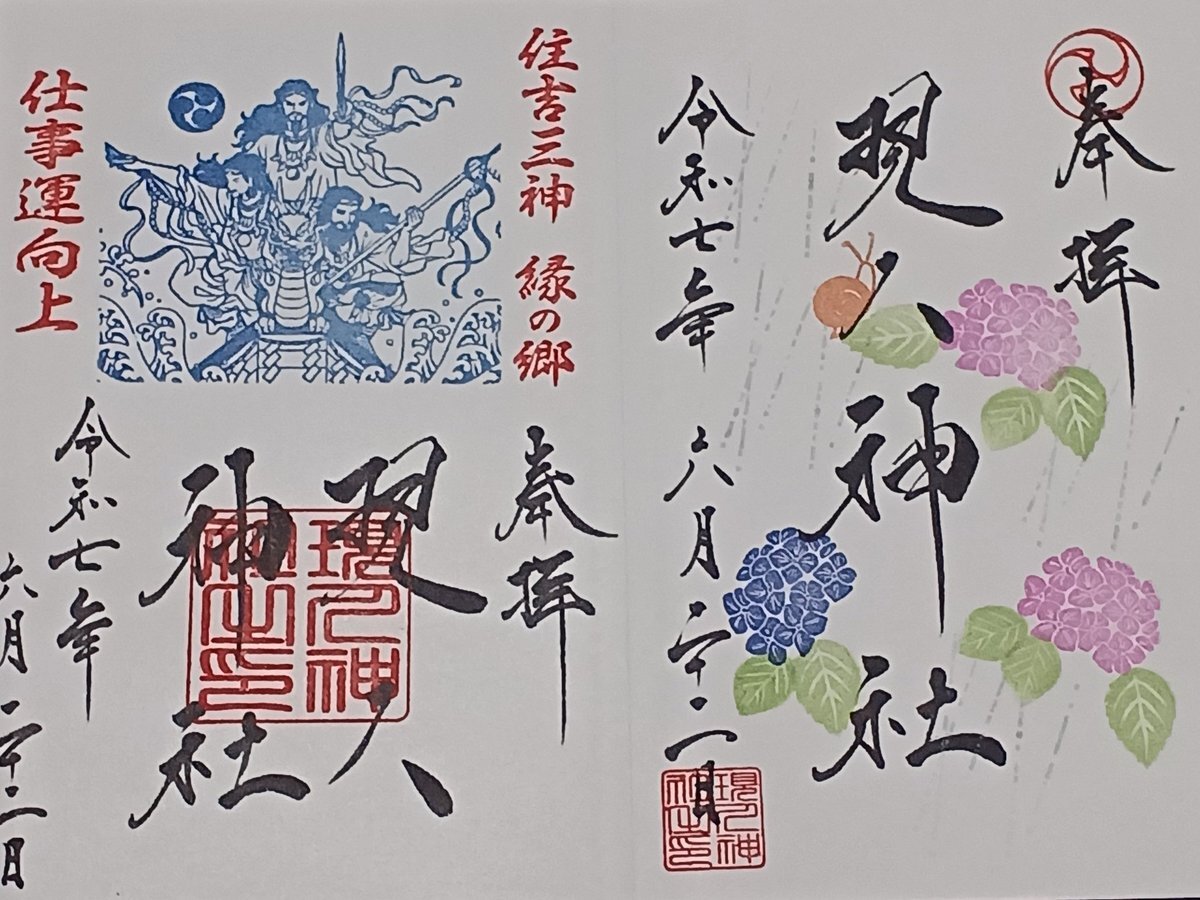 奉拝
現人神社
令和七年 六月二十二日
現人神
社之印
住吉三神 縁の郷
仕事運向上
奉拝
現人
神社
現人神
社之印
令和七年
六月二十二日